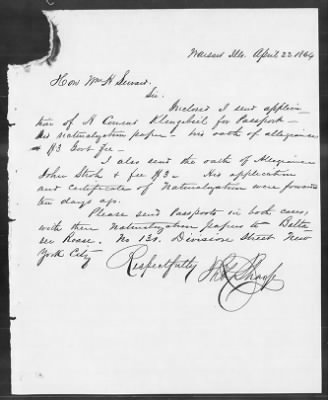 Warsaw Ills. April 22 1864
Hon Wm H Seward.
Sir.
Inclosed I send applica-
tion of A Conrad Klengebeil for Passport —
his naturalization paper — his oath of allegiance
& $3 Govt Fee —
I also send the oath of Allegiance
John Stroh & fee $3 — His application
and Certificate of Naturalization were forwarded
ten days ago.
Please send Passports in both cases,
with their Naturalization papers to
No 130. Division Street New
York City
Respectfully
Sharp